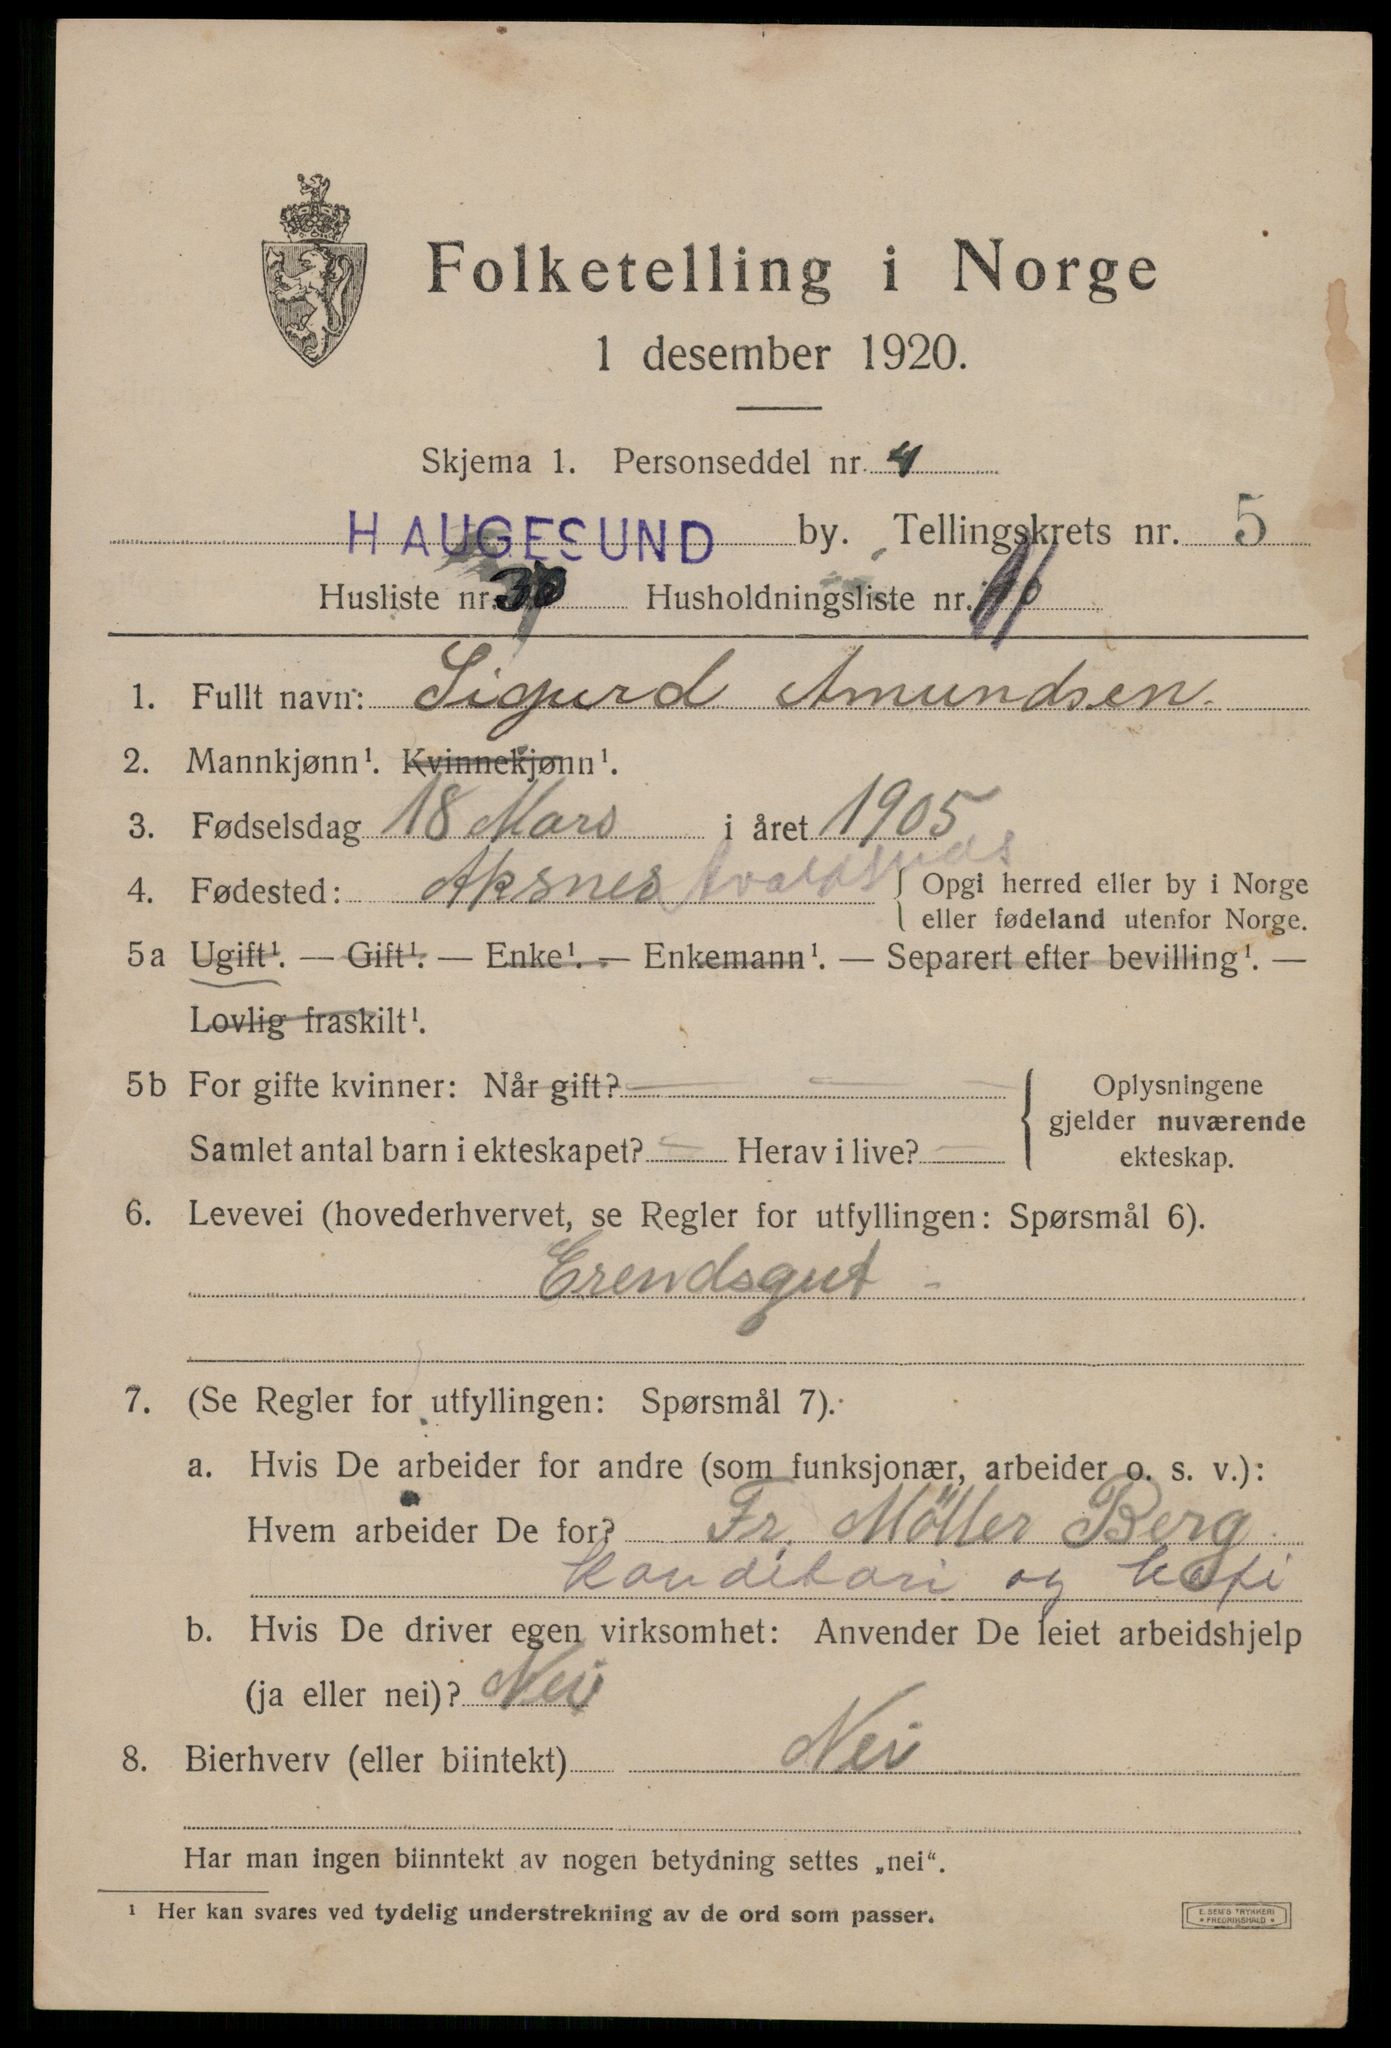 Folketelling i Norge
1 desember 1920.
Skjema 1. Personseddel nr. 4
HAUGESUND by. Tellingskrets nr. 5
Husliste nr. Husholdningsliste nr.
1. Fullt navn: Sigurd Amundsen.
2. Mannkjønn¹. Kvinnekjønn¹.
3. Fødselsdag 18 Mars i året 1905
4. Fødested: Aksnes Avaldsnes { Opgi herred eller by i Norge
eller fødeland utenfor Norge.
5a Ugift¹. — Gift¹. — Enke¹. — Enkemann¹. — Separert efter bevilling¹. —
Lovlig fraskilt¹.
5b For gifte kvinner: Når gift? — — { Oplysningene
gjelder nuværende
Samlet antal barn i ekteskapet? — Herav i live? — ekteskap.
6. Levevei (hovederhvervet, se Regler for utfyllingen: Spørsmål 6).
Erendsgut -
7. (Se Regler for utfyllingen: Spørsmål 7).
a. Hvis De arbeider for andre (som funksjonær, arbeider o. s. v.):
Hvem arbeider De for? Fr. Möller Berg
Konditori og kafe
b. Hvis De driver egen virksomhet: Anvender De leiet arbeidshjelp
(ja eller nei)? Nei
8. Bierhverv (eller biintekt) Nei
Har man ingen biinntekt av nogen betydning settes „nei“.
¹ Her kan svares ved tydelig understrekning av de ord som passer.
E. SEM'S TRYKKERI
* FREDRIKSHALD *